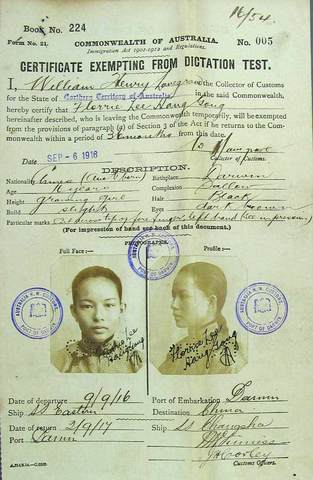 16/54
Book No. 224
Form No. 21. COMMONWEALTH OF AUSTRALIA. No. 005
Immigration Act 1901-1912 and Regulations.
CERTIFICATE EXEMPTING FROM DICTATION TEST.
I, William Henry the Collector of Customs
for the State of Northern Territory of Australia in the said Commonwealth,
hereby certify that Florrie Lee Hang Gong
hereinafter described, who is leaving the Commonwealth temporarily, will be exempted
from the provisions of paragraph (a) of Section 3 of the Act if he returns to the Com-
monwealth within a period of 36 months from this date.
Date SEP -6 1916 Collector of Customs.
DESCRIPTION.
Nationality Chinese (Aus. born) Birthplace Darwin
Age years Complexion Sallow
Height growing girl Hair Black
Build slightly Eyes Dark Brown
Particular marks tip of forefinger left hand
(For impression of hand see back of this document.)
PHOTOGRAPHS.
Full Face:— Profile:—
AUSTRALIA N.T. CUSTOMS
PORT OF DARWIN
Florrie Lee
Hang Gong
Florrie Lee
Hang Gong
Date of departure 9/9/16 Port of Embarkation Darwin
Ship SS Eastern Destination China
Date of return 2/9/17 Ship SS Changsha
Port Darwin
Customs Officers.